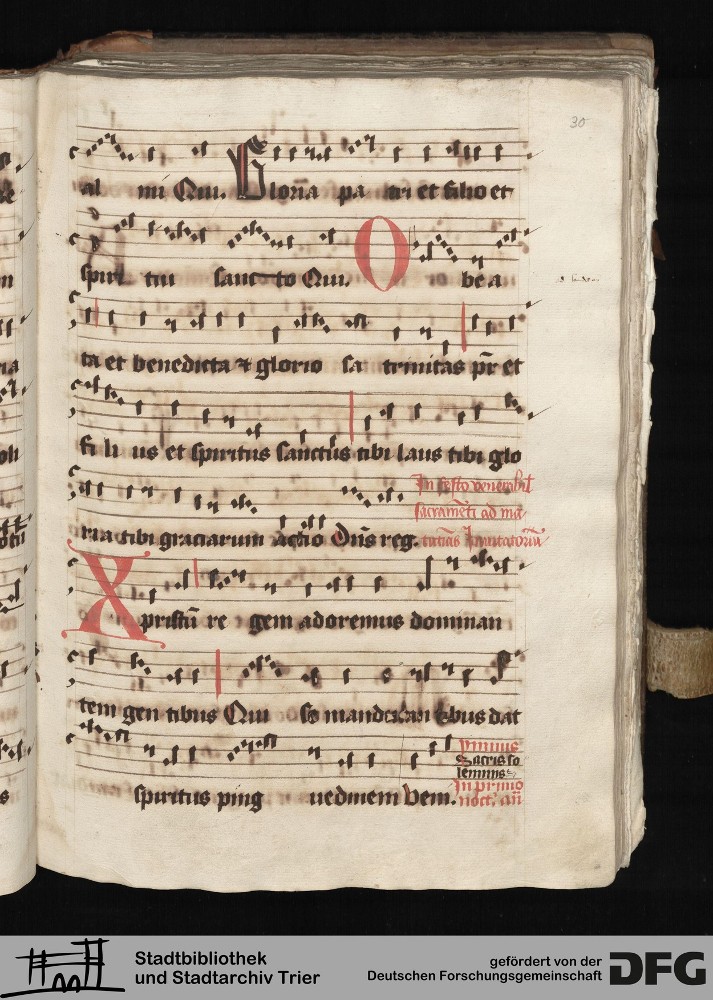 30
al mi Qui. Gloria pa tri et filio et
spiri tui sanc to Qui. O be a
ta et benedicta et glorio sa trinitas pr̄ et
fi li us et spiritus sanctus tibi laus tibi glo
In festo venerabil
sacramēti ad ma
ria tibi graciarum actio Dn̄s reg. tutinas Invitatoriū
Xpristū re gem adoremus dominan
tem gen tibus Qui se manducan tibus dat
ymnus
Sacris so
lemniis
In primo
spiritus ping uedinem Vem. noct. an̄
Stadtbibliothek
und Stadtarchiv Trier
gefördert von der
Deutschen Forschungsgemeinschaft
DFG